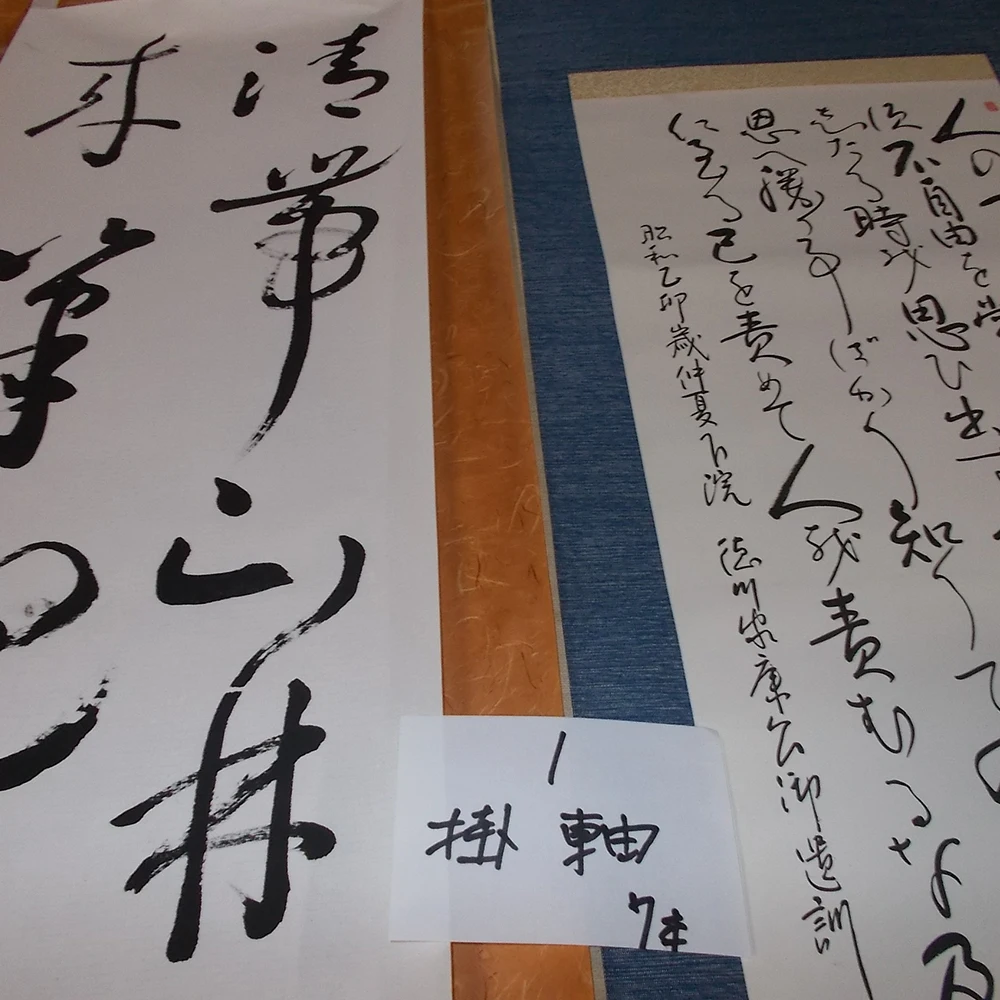 人の
不自由を常
したる時を思ひ出
思へ勝事ばかり知りて
に至る己を責めて人を責むるな及
昭和乙卯歳仲夏下浣 徳川家康公御遺訓
清
山林
来
1
掛軸
7本